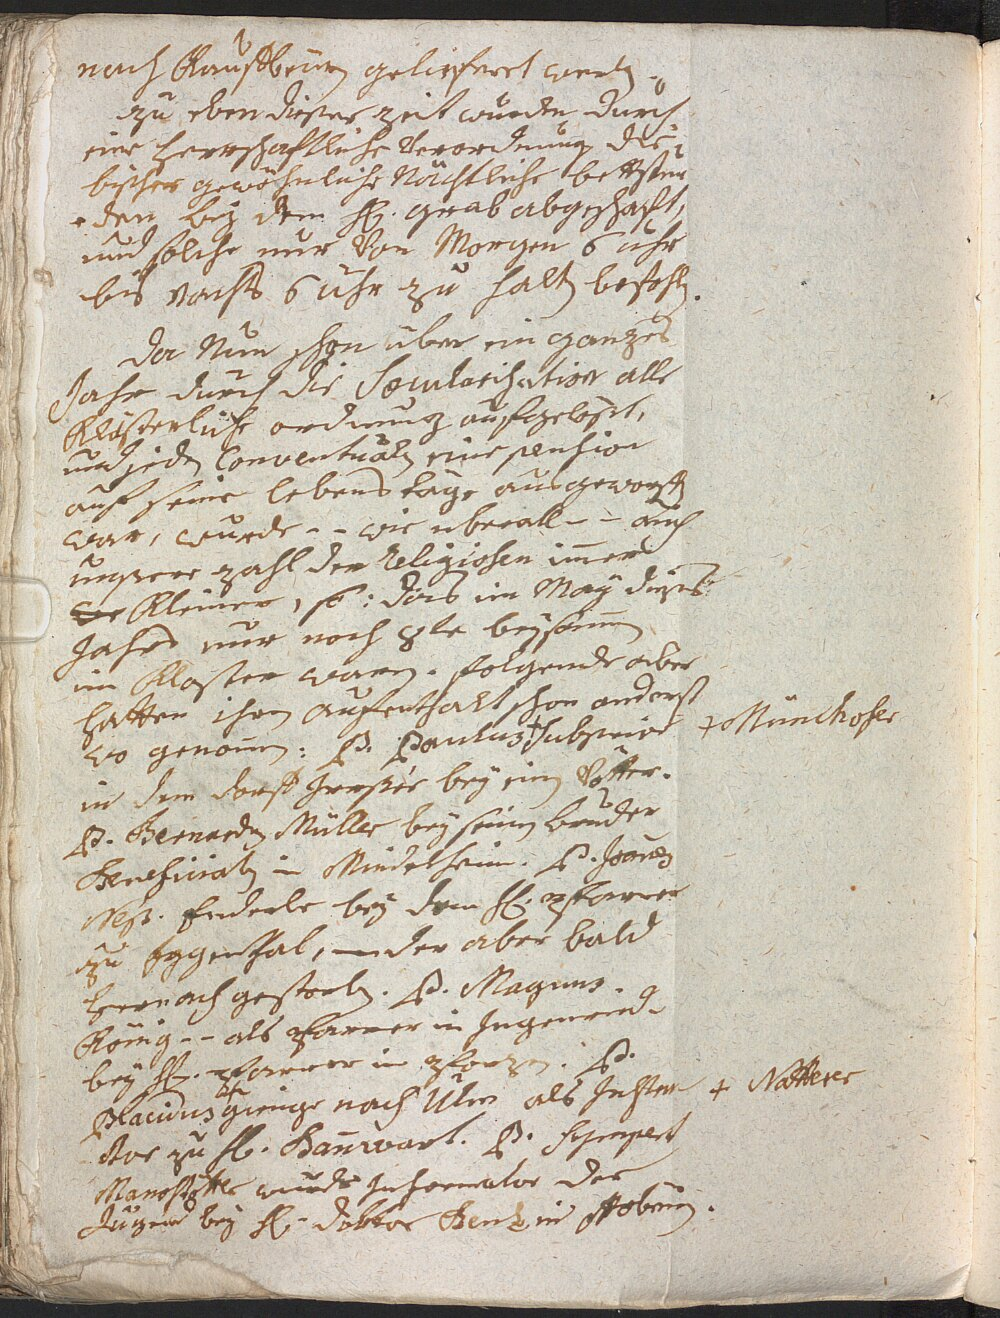 nach Kaufbeuren geliefert werden.
zu eben dieser zeit wurden durch
eine herrschaftliche Verordnung die
bisher gewöhnliche Nächtliche bettstun
den bey dem H. grab abgeschaft,
und solche nur Von Morgen 6 uhr
bis nachts 6 uhr zu halten befohlen.
Da Nun schon über ein ganzes
Jahr durch die Secularisation alle
Klösterliche ordnung aufgelößt,
und jeden Conventualen eine pension
auf seine lebens täge ausgeworfen
war, wurde -- wie überall -- auch
unsere zahl der Religiosen immer
Kleiner, so: das im May dieses
Jahrs nur noch 8te beysamen
im Kloster waren. folgende aber
hatten ihren aufenthalt schon anderst
wo genomen: P. Paulus + Subprior + Münchofer
in dem dorf Irrsee bey einem Vetter.
P. Bernardin Müller bey seinem bruder
Beneficiaten in Mindelheim. P. Joannes
Nep. Enderle bey dem H. pfarrer
zu Eggenthal, der aber bald
hernach gestorben. P. Magnus
König -- als pfarrer in Ingenried
bey H. pfarrer in pforzen. P.
Placidus + gienge nach Ulm als Instru + Natterer
ctor zu H. Bannwart. P. Sympert
wurde Informator der
Jugend bey H. doktor Benz in